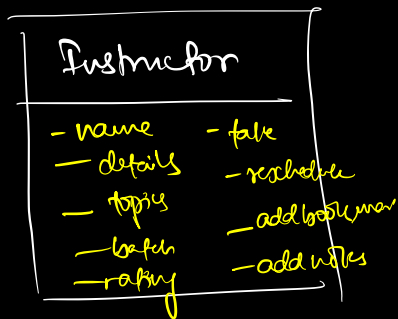 Instructor
- name
- details
- topics
- batch
- rating
- take
- reschedule
- add bookmar
- add notes